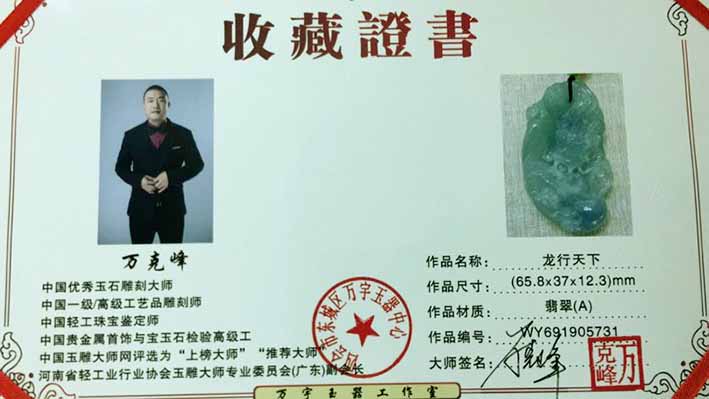 收藏證書
万克峰
中国优秀玉石雕刻大师
中国一级/高级工艺品雕刻师
中国轻工珠宝鉴定师
中国贵金属首饰与宝玉石检验高级工
中国玉雕大师网评选为“上榜大师”“推荐大师”
河南省轻工业行业协会玉雕大师专业委员会(广东)副会长
作品名称: 龙行天下
作品尺寸: (65.8x37x12.3)mm
作品材质: 翡翠(A)
作品编号: WY691905731
大师签名:
万克峰
会市东城区万宇玉器中心
万宇玉器工作室